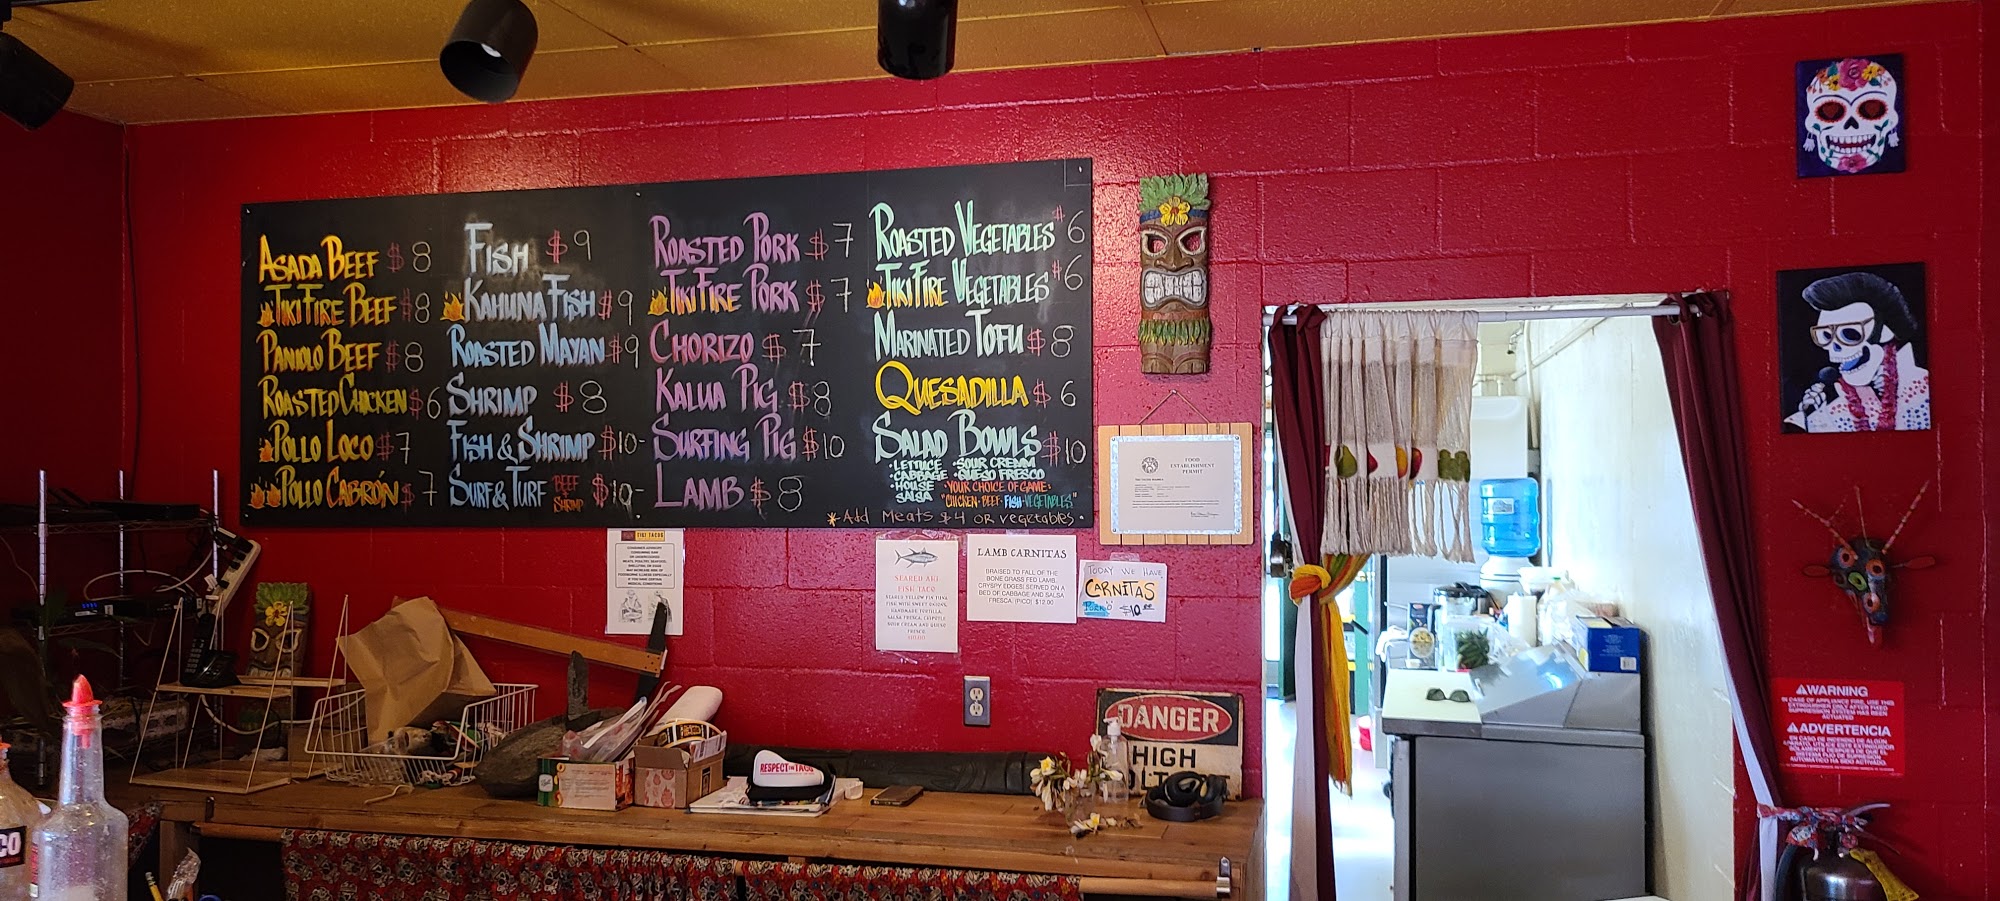 ASADA BEEF $8
TIKI FIRE BEEF $8
PANIOLO BEEF $8
ROASTED CHICKEN $6
POLLO LOCO $7
POLLO CABRÓN $7
FISH $9
KAHUNA FISH $9
ROASTED MAYAN $9
SHRIMP $8
FISH & SHRIMP $10-
SURF & TURF BEEF + SHRIMP $10-
ROASTED PORK $7
TIKI FIRE PORK $7
CHORIZO $7
KALUA PIG $8
SURFING PIG $10
LAMB $8
ROASTED VEGETABLES $6
TIKI FIRE VEGETABLES $6
MARINATED TOFU $8
QUESADILLA $6
SALAD BOWLS $10
• LETTUCE • SOUR CREAM
• CABBAGE • QUESO FRESCO
• HOUSE SALSA
YOUR CHOICE OF GAME:
"CHICKEN • BEEF • FISH • VEGETABLES"
*Add Meats $4 or vegetables
TIKI TACOS
SEARED AHI
FISH TACO
SEARED YELLOW FIN TUNA
FINE WITH SWEET ONIONS,
HANDMADE TORTILLA,
SALSA FRESCA, CHIPOTLE
SOUR CREAM AND QUESO
FRESCO
LAMB CARNITAS
BRAISED TO FALL OF THE
BONE GRASS FED LAMB,
CRYSPY EDGES! SERVED ON A
BED OF CABBAGE AND SALSA
FRESCA, (PICO) $12.00
TODAY WE HAVE
CARNITAS
PORK $10.00
FOOD
ESTABLISHMENT
PERMIT
DANGER
HIGH
RESPECT THE TACO
WARNING
IN CASE OF APPLIANCE FIRE, USE THIS
EXTINGUISHER ONLY AFTER FIXED
SUPPRESSION SYSTEM HAS BEEN
ACTUATED
ADVERTENCIA
EN CASO DE INCENDIO DE ALGÚN
APARATO, UTILICE ESTE EXTINGUIDOR
SOLAMENTE DESPUÉS DE QUE EL
SISTEMA FIJO DE SUPRESIÓN
AUTOMÁTICO HA SIDO ACTIVADO.
CO